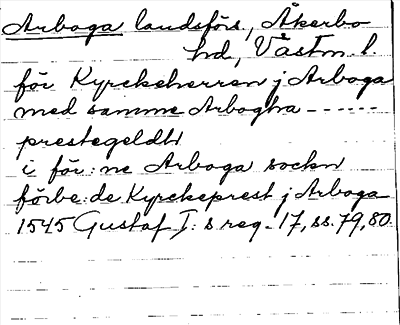 Arboga landsförs., Åkerbo
hd, Västm. l.
för Kyrckeherren j Arboga
med samme Arbogha ------
prestegeldtt
i för:ne Arboga sockn
förbe:de Kyrckeprest j Arboga
1545 Gustaf I:s reg. 17, ss. 79, 80.